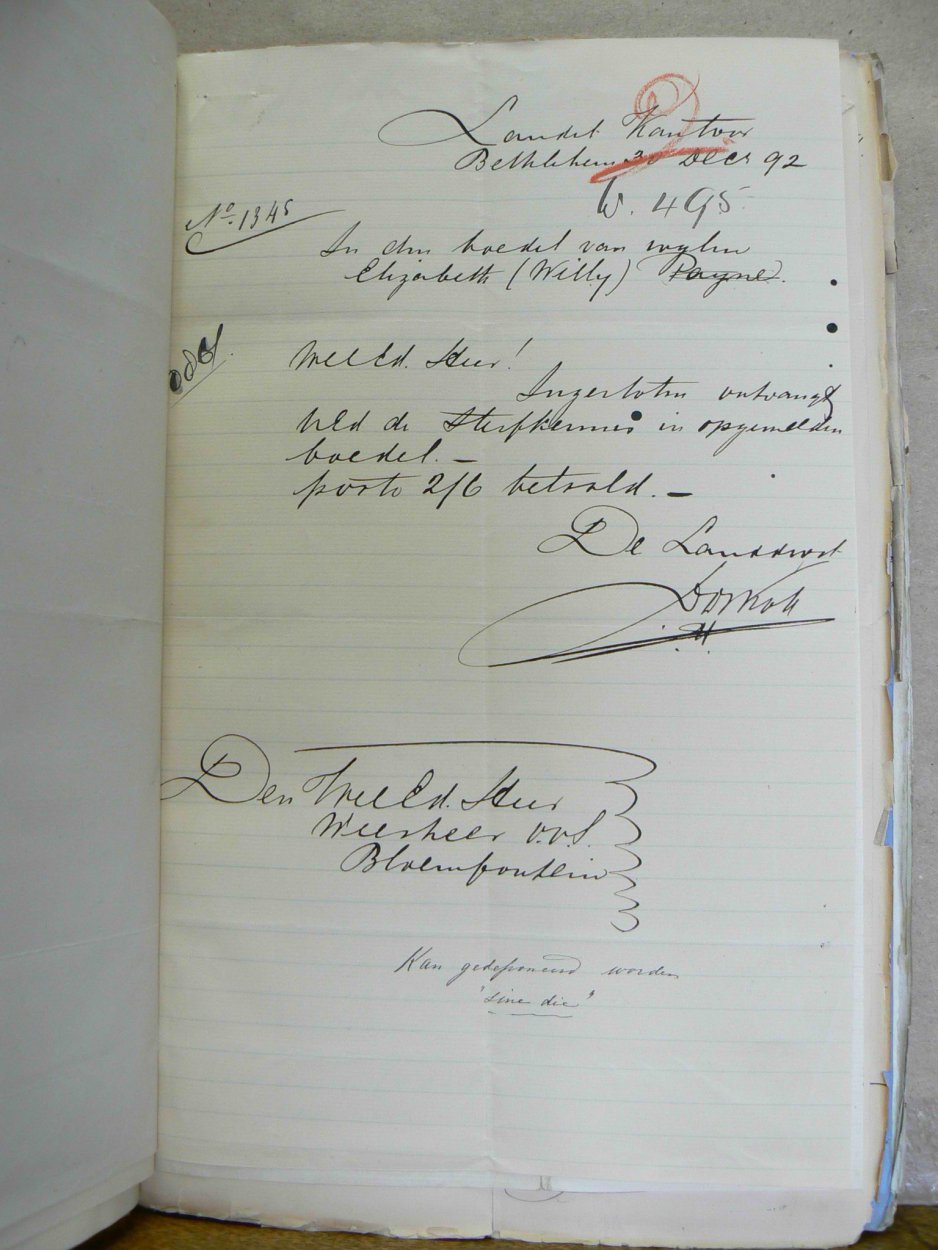 Landdt Kantoor
Bethlehem 30 Decr 92
W. 495
No. 1345
In den boedel van wylen
Elizabeth (Willy) Payne.
WelEd. Heer!
Ingesloten ontvangt
UEd de Sterfkennis in opgemelden
boedel. —
porto 2/6 betaald. —
De Landdrost
Den WelEd. Heer
Weesheer O.V.S.
Bloemfontein
Kan gedeponeerd worden
"sine die"